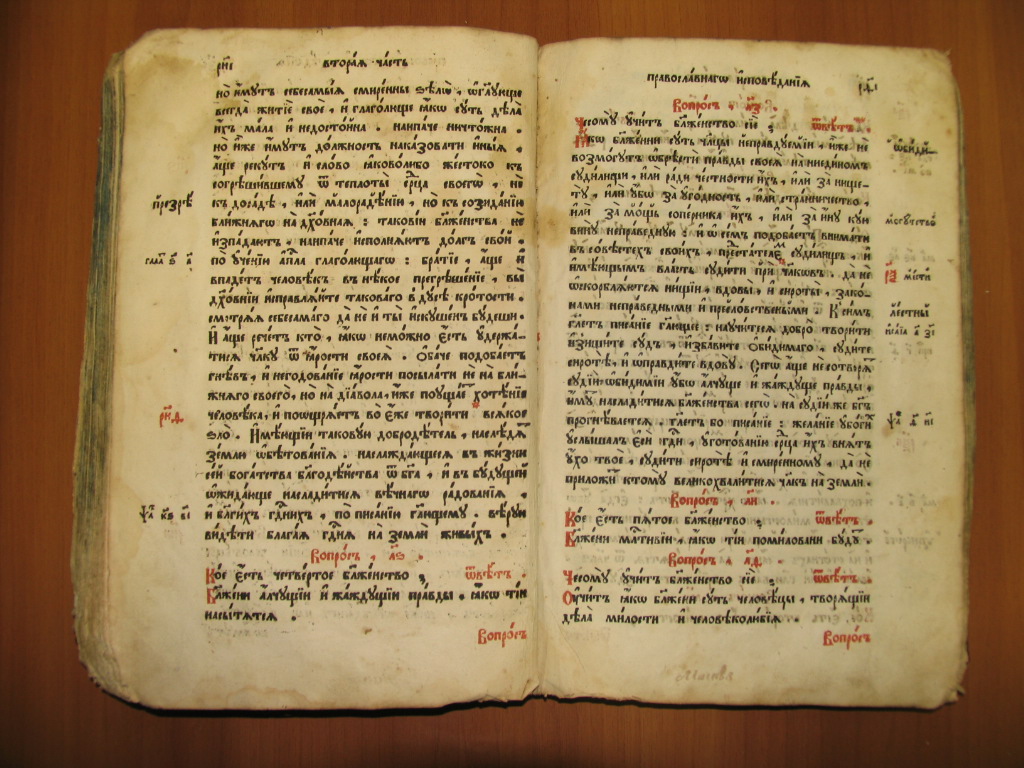 втораѧ часть
но имутъ себесамыѧ смиренны ѕѣлѡ, ѡглѹюще
всегда житїе свое, и глаголюще ꙗкѡ суть дѣла
ихъ мала и недостойна. наипаче ничтѡжна.
но иже имутъ должность наказовати иныѧ,
аще рекутъ и слово ꙗковолибо жестоко къ
согрѣшившему ѿ теплоты срⷣца своегѡ, не
къ досадѣ, или малорадѣнїю, но къ созиданїю
ближнѧгѡ на дх҃овнаѧ: таковїи бл҃женства не
испадаютъ, наипаче исполнѧютъ долгъ свой.
по ѹченїю ап҃ла глаголющаго: братїе, аще и
впадетъ человѣкъ въ нѣкое прегрѣшенїе, вы
дх҃овнїи исправлѧйте таковаго въ дусѣ кротости.
смотрѧѧ себесамаго да не и ты искушенъ будеши.
И аще речетъ кто, ꙗкѡ неможно есть удержа-
тисѧ чл҃ку ѿ ꙗрости своеѧ. Обаче подобаетъ
гнѣвъ, и негодованїе ꙗрости посылати не на бли-
жнѧго своего, но на дїавола, иже поущаетъ хотѣнїе
человѣка, и поощрѧетъ во еже творити всѧкое
ѕло. Имѣющїи таковую добродѣтель, наслѣдѧтъ
землю ѡбѣтованїѧ. наслаждающесѧ въ жизни
сей богатства благодѣйства ѿ бг҃а, и въ будущей
ѡжидающе насладитисѧ вѣчнагѡ радованїѧ,
и бл҃гихъ гдⷭ҇нихъ, по писанїю гл҃ющему. вѣрую
видѣти благаѧ гдⷭ҇нѧ на земли живыхъ.
Вопросъ, л҃ѕ.
Кое есть четвертое бл҃женство; Ѿвѣтъ.
Бл҃жени алчущїи и жаждущїи правды. ꙗкѡ тїи
насытѧтсѧ.
Вопросъ
презрѣ
рн҃д
ѱал҃ к҃ѕ в҃і
православнагѡ исповѣданїѧ
Вопросъ, л҃з.
Чесому учитъ бл҃женство сїе; Ѿвѣтъ.
Ꙗкѡ бл҃женни суть чл҃цы неправдуемїи, иже не
возмогутъ ѡбрѣсти правды своеѧ на ниединомъ
судилищи, или ради честности ихъ, или за нище-
ту, или убѡ за угодность, или странничество,
или за мощь соперника ихъ, или за ину кую
вину неправедную: и ѡ семъ подобаетъ внимати
въ совѣстехъ своихъ, предстателемъ судилищъ, и
имѣющымъ власть судити при чл҃ковъ. да не
ѡскорблѧютсѧ нищїи, вдовы, и сироты, зако-
нами неправедными и прелюбовственными. Къ симъ
гл҃етъ писанїе гл҃ющее: научитесѧ добро творити
изыщите судъ, избавите обидимаго, судите
сиротѣ, и ѡправдите вдову. Сегѡ аще не сотворѧтъ
судїи: ѡбидимїи убѡ алчуще и жаждуще правды,
иму насладитисѧ бл҃женства сегѡ. на судїи же бг҃ъ
прогнѣваетсѧ. Гл҃етъ бо писанїе: желанїе убогихъ
услышалъ еси гдⷭ҇и, уготованїю срⷣца ихъ внѧтъ
ухо твое, судити сиротѣ и смиренному, да не
приложитъ ктому великохвалитисѧ чл҃къ на земли.
Вопросъ, л҃и.
Кое есть пѧтое бл҃женство; Ѿвѣтъ.
Бл҃жени млⷭ҇тивїи, ꙗкѡ тїи помиловани будутъ.
Вопросъ, л҃ѳ.
Чесому учитъ бл҃женство сїе; Ѿвѣтъ.
Оучитъ ꙗкѡ бл҃жени суть человѣцы, творѧщїи
дѣла милости и человѣколюбїѧ.
Вопросъ
могутство
мѣсти
лестныѧ
исаїа а҃
ѱал҃